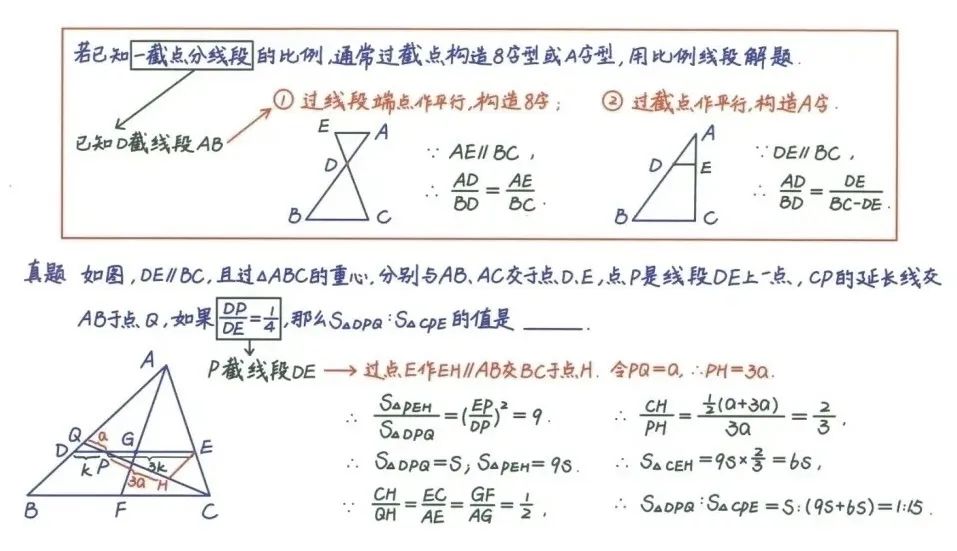 若已知一截点分线段的比例,通常过截点构造8字型或A字型,用比例线段解题.
① 过线段端点作平行,构造8字;
② 过截点作平行,构造A字.
已知D截线段AB
E A
D
B C
∵ AE∥BC,
∴ AD/BD = AE/BC.
A
D E
B C
∵DE∥BC,
∴ AD/BD = DE/BC-DE.
真题 如图,DE∥BC,且过△ABC的重心,分别与AB、AC交于点D、E,点P是线段DE上一点,CP的延长线交
AB于点Q,如果DP/DE=1/4,那么S△DPQ:S△CPE的值是____.
P截线段DE → 过点E作EH∥AB交BC于点H. 令PQ=a,∴PH=3a.
∴ S△PEH/S△DPQ=(EP/DP)²=9.
∴ CH/PH=½(a+3a)/3a=2/3,
∴ S△DPQ=S;S△PEH=9S.
∴ S△CEH=9S×2/3=6S,
∵ CH/QH=EC/AE=GF/AG=1/2,
∴ S△DPQ:S△CPE=S:(9S+6S)=1:15.
A
Q a G
D P E
k 3k
3a H
B F C